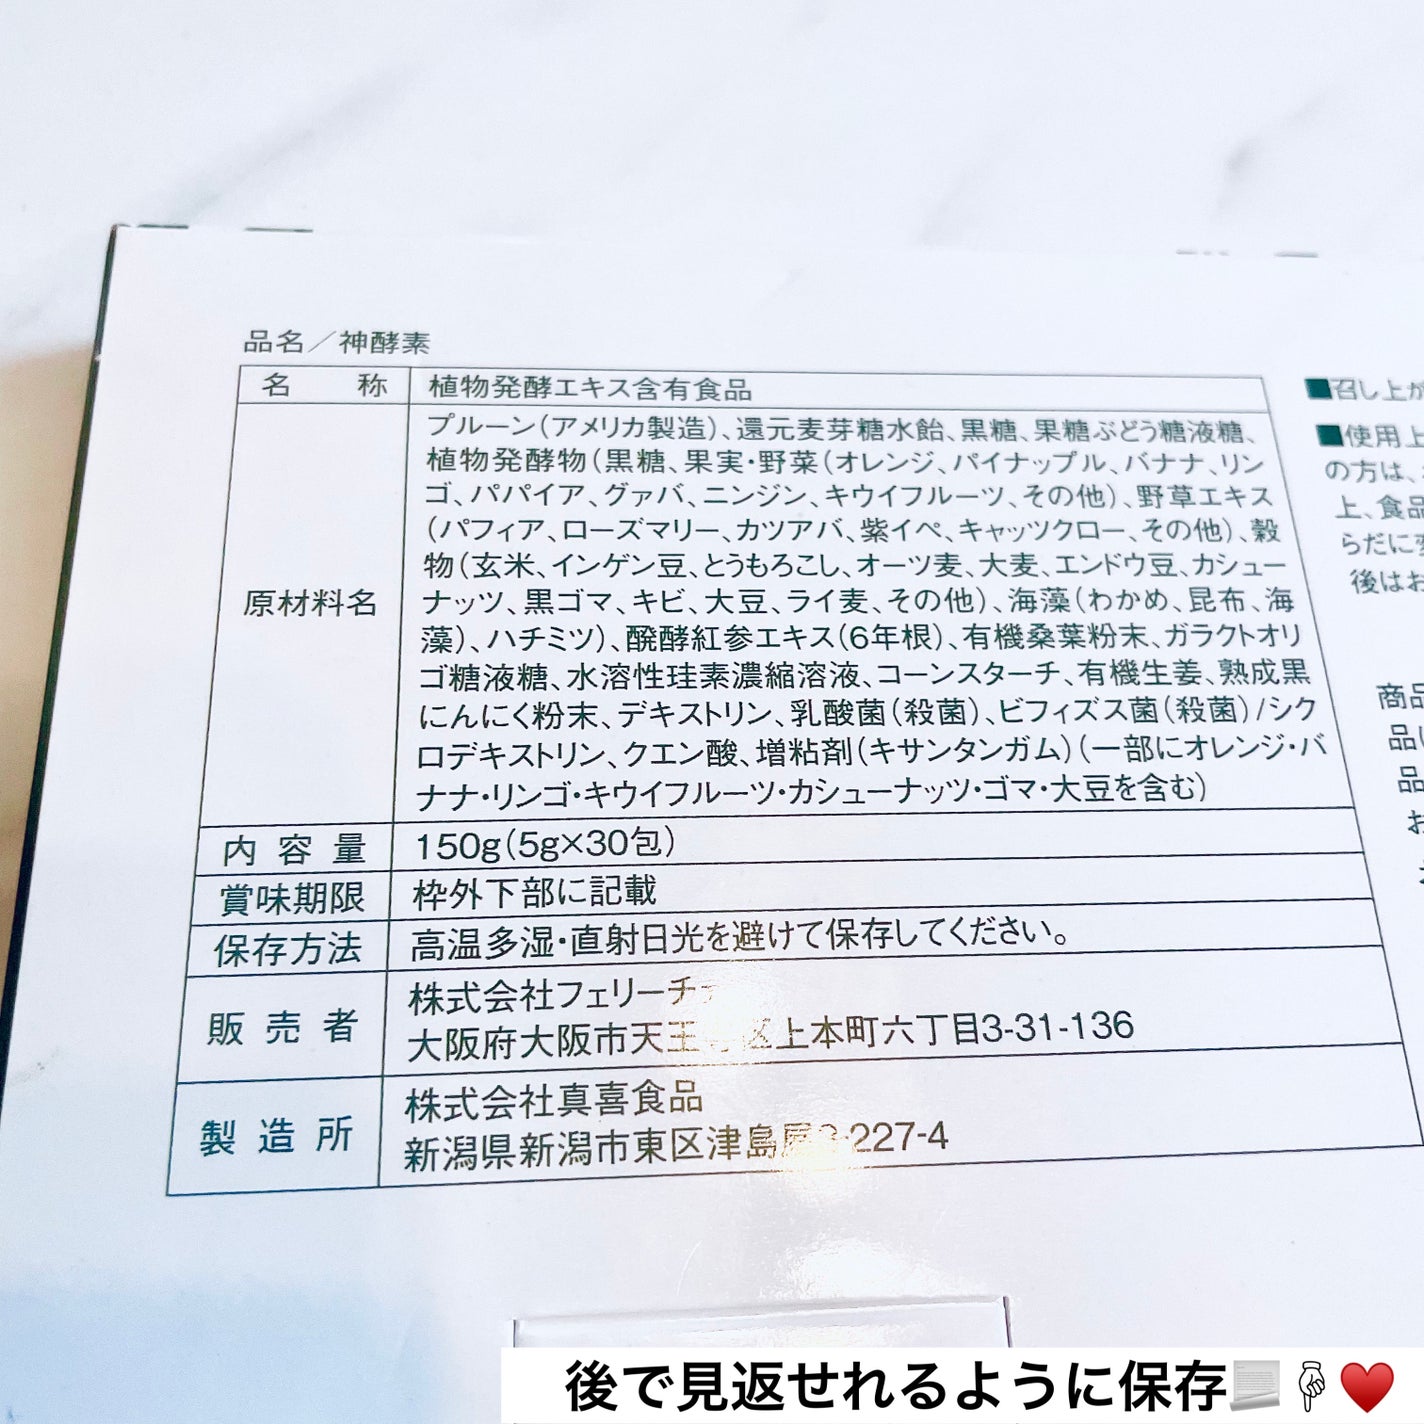 品名／神酵素
名 称 植物発酵エキス含有食品
原材料名
プルーン(アメリカ製造)、還元麦芽糖水飴、黒糖、果糖ぶどう糖液糖、
植物発酵物(黒糖、果実・野菜(オレンジ、パイナップル、バナナ、リン
ゴ、パパイア、グァバ、ニンジン、キウイフルーツ、その他)、野草エキス
(パフィア、ローズマリー、カツアバ、紫イペ、キャッツクロー、その他)、穀
物(玄米、インゲン豆、とうもろこし、オーツ麦、大麦、エンドウ豆、カシュー
ナッツ、黒ゴマ、キビ、大豆、ライ麦、その他)、海藻(わかめ、昆布、海
藻)、ハチミツ)、醗酵紅参エキス(6年根)、有機桑葉粉末、ガラクトオリ
ゴ糖液糖、水溶性珪素濃縮溶液、コーンスターチ、有機生姜、熟成黒
にんにく粉末、デキストリン、乳酸菌(殺菌)、ビフィズス菌(殺菌)/シク
ロデキストリン、クエン酸、増粘剤(キサンタンガム)(一部にオレンジ・バ
ナナ・リンゴ・キウイフルーツ・カシューナッツ・ゴマ・大豆を含む)
内容量 150g(5g×30包)
賞味期限 枠外下部に記載
保存方法 高温多湿・直射日光を避けて保存してください。
販売者
株式会社フェリーチ
大阪府大阪市天王 区上本町六丁目3-31-136
製造所
株式会社真喜食品
新潟県新潟市東区津島屋 227-4
■召し上が
■使用上
の方は、
上、食品
らだに
後はお
商品
品
品
お
後で見返せれるように保存📃👇♥️